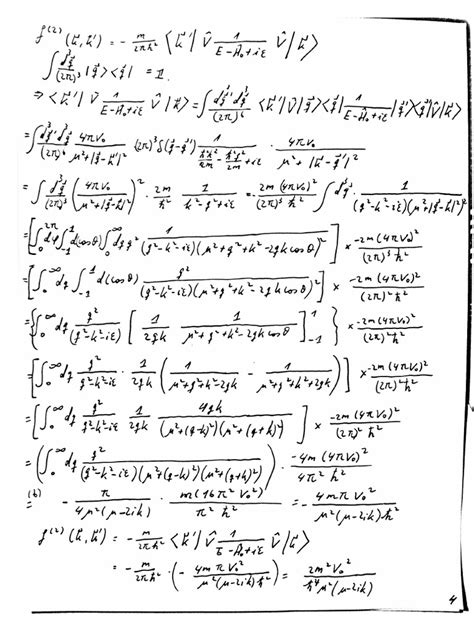 f^{(2)}(k⃗, k⃗') = - m/2πħ² ⟨k⃗'| V̂ 1/(E-Ĥ₀+iε) V̂ |k⃗⟩
∫ d³q/(2π)³ |q⃗⟩⟨q⃗| = 1l.
⇒ ⟨k⃗'| V̂ 1/(E-Ĥ₀+iε) V̂ |k⃗⟩ = ∫ d³q' d³q/(2π)⁶ ⟨k⃗'|V̂|q⃗⟩⟨q⃗| 1/(E-Ĥ₀+iε) |q⃗'⟩⟨q⃗'|V̂|k⃗⟩
= ∫ d³q' d³q/(2π)⁶ 4πV₀/(μ²+|q⃗-k⃗'|²) (2π)³ δ(q⃗-q⃗') 1/(ħ²k²/2m - ħ²q²/2m + iε) · 4πV₀/(μ²+|k⃗-q⃗'|²)
= ∫ d³q/(2π)³ (4πV₀/(μ²+|q⃗-k⃗|²))² · 2m/ħ² 1/(k²-q²+iε) = -2m(4πV₀)²/((2π)³ħ²) ∫ dq³ · 1/((q²-k²-iε)(μ²+|q⃗-k⃗|²)²)
= [∫₀^{2π} dφ ∫_{-1}^{1} d(cosθ) ∫₀^∞ dq q² 1/((q²-k²-iε)(μ²+q²+k²-2qk cosθ)²)] × -2m(4πV₀)²/((2π)³ħ²)
= [∫₀^∞ dq ∫_{-1}^{1} d(cosθ) q²/((q²-k²-iε)(μ²+q²+k²-2qk cosθ)²)] × -2m(4πV₀)²/((2π)²ħ²)
= {∫₀^∞ dq q²/(q²-k²-iε) [1/2qk 1/(μ²+q²+k²-2qk cosθ)]_{-1}^{1}} × -2m(4πV₀)²/((2π)²ħ²)
= [∫₀^∞ dq q²/(q²-k²-iε) · 1/2qk (1/(μ²+q²+k²-2qk) - 1/(μ²+q²+k²+2qk))] × -2m(4πV₀)²/((2π)²ħ²)
= [∫₀^∞ dq q²/(q²-k²-iε) 1/2qk 4qk/((μ²+(q-k)²)(μ²+(q+k)²))] × -2m(4πV₀)²/((2π)²ħ²)
= (∫₀^∞ dq q²/((q²-k²-iε)(μ²+(q-k)²)(μ²+(q+k)²))) · -4m(4πV₀)²/(4π²ħ²)
(b) = - π/(4μ²(μ-2ik)) · m(16π²V₀²)/(π²ħ²) = - 4mπV₀²/(μ²(μ-2ik)ħ²)
f^{(2)}(k⃗, k⃗') = - m/2πħ² ⟨k⃗'| V̂ 1/(E-Ĥ₀+iε) V̂ |k⃗⟩
= - m/2πħ² · (- 4mπV₀²/(μ²(μ-2ik)ħ²)) = 2m²V₀²/(ħ⁴μ²(μ-2ik))
4